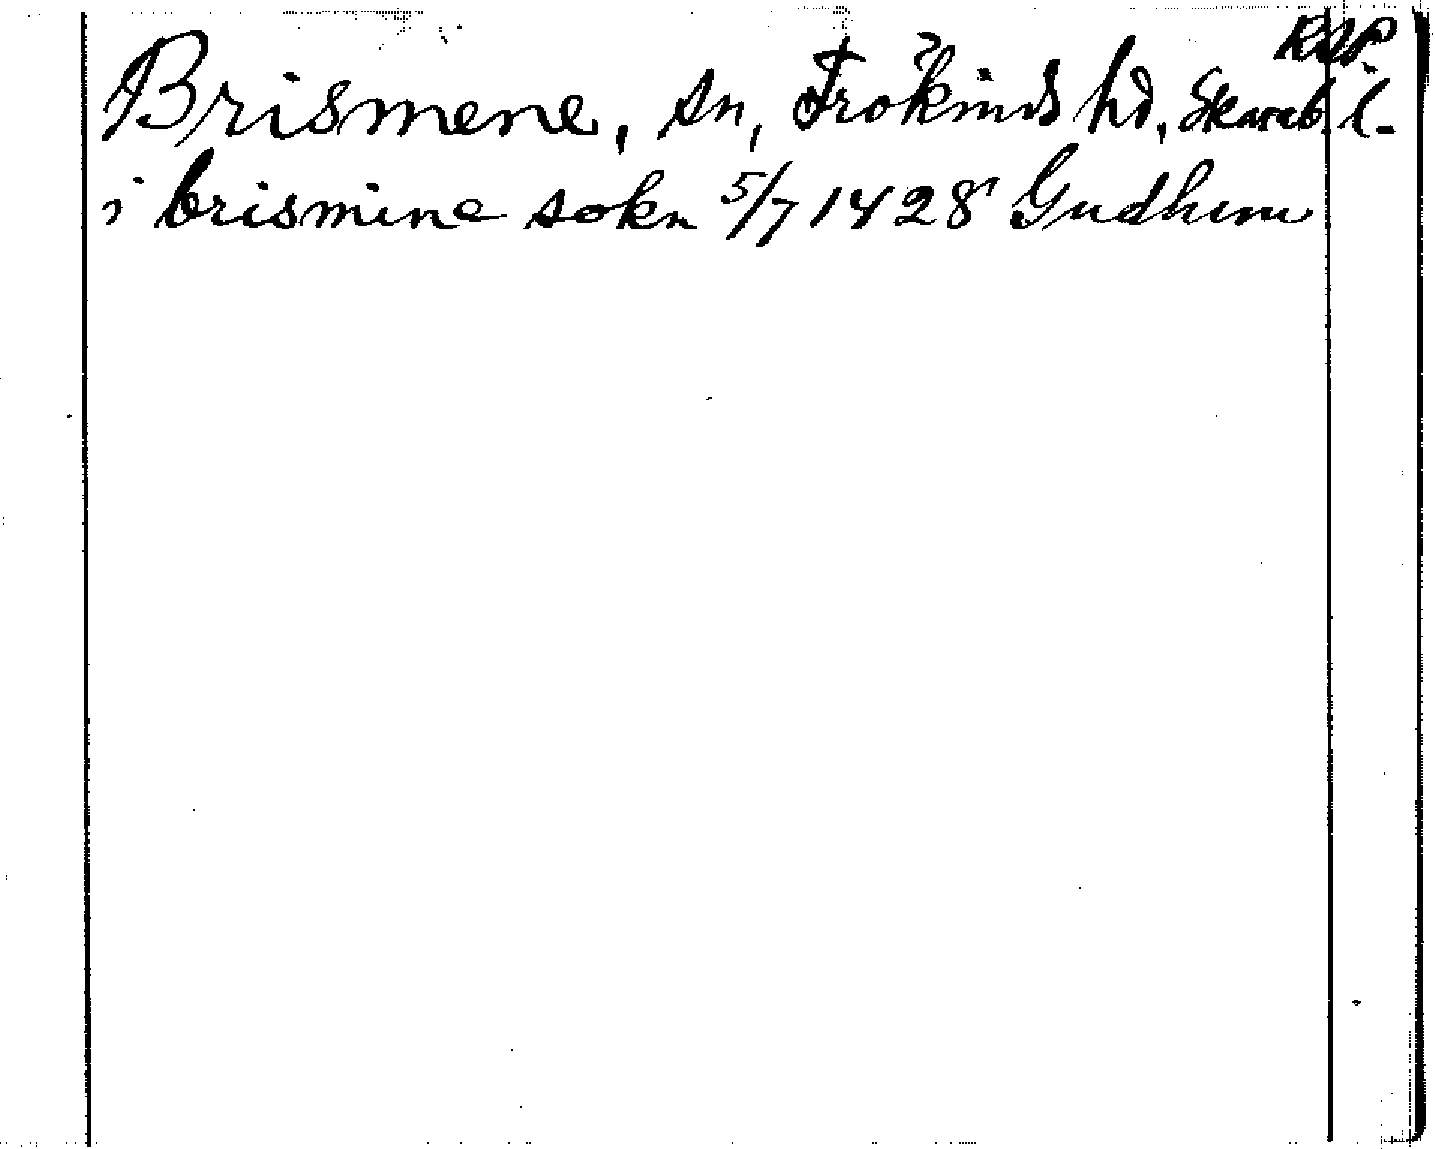 RAP.
Brismene, sn, Frökinds hd, Skarab. l.
i brismine sokn 5/7 1428 Gudhem